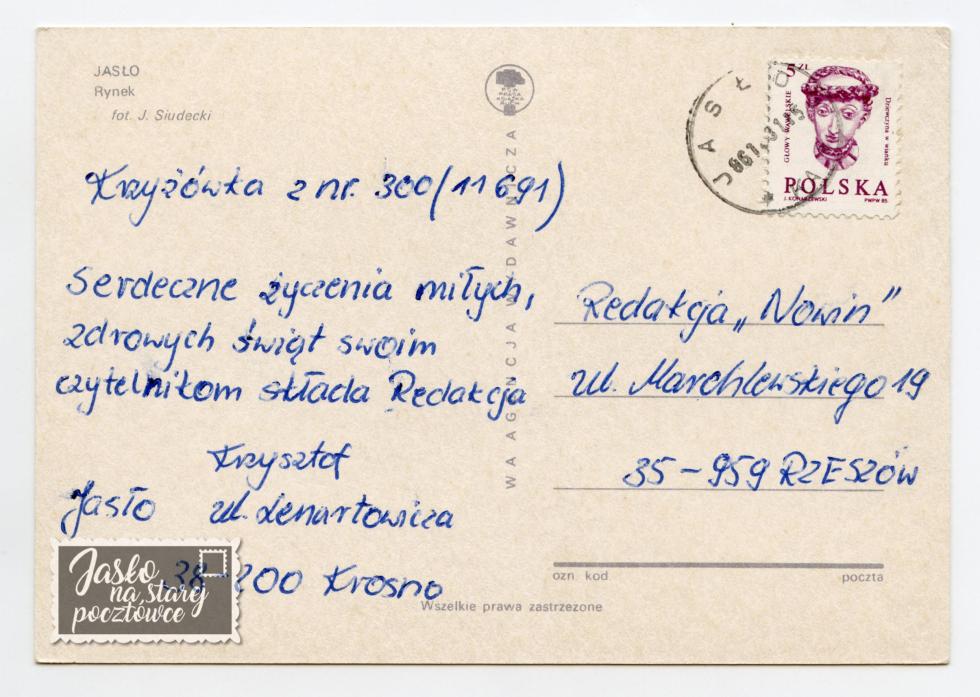 JASŁO
Rynek
fot. J. Siudecki
Krzyżówka z nr. 300 (11 691)
Serdeczne życzenia miłych,
zdrowych świąt swoim
czytelnikom składa Redakcja
Krzysztof
Jasło ul. Lenartowicza
38-200 Krosno
Jasło
na starej
pocztówce
WA AGENCJA WYDAWNICZA
JASŁO
5 ZŁ
GŁOWY WAWELSKIE
Dziewczyna w wianku
POLSKA
J. KONARZEWSKI PWPW 85
Redakcja „Nowin"
ul. Marchlewskiego 19
35-959 RZESZÓW
ozn kod poczta
Wszelkie prawa zastrzeżone